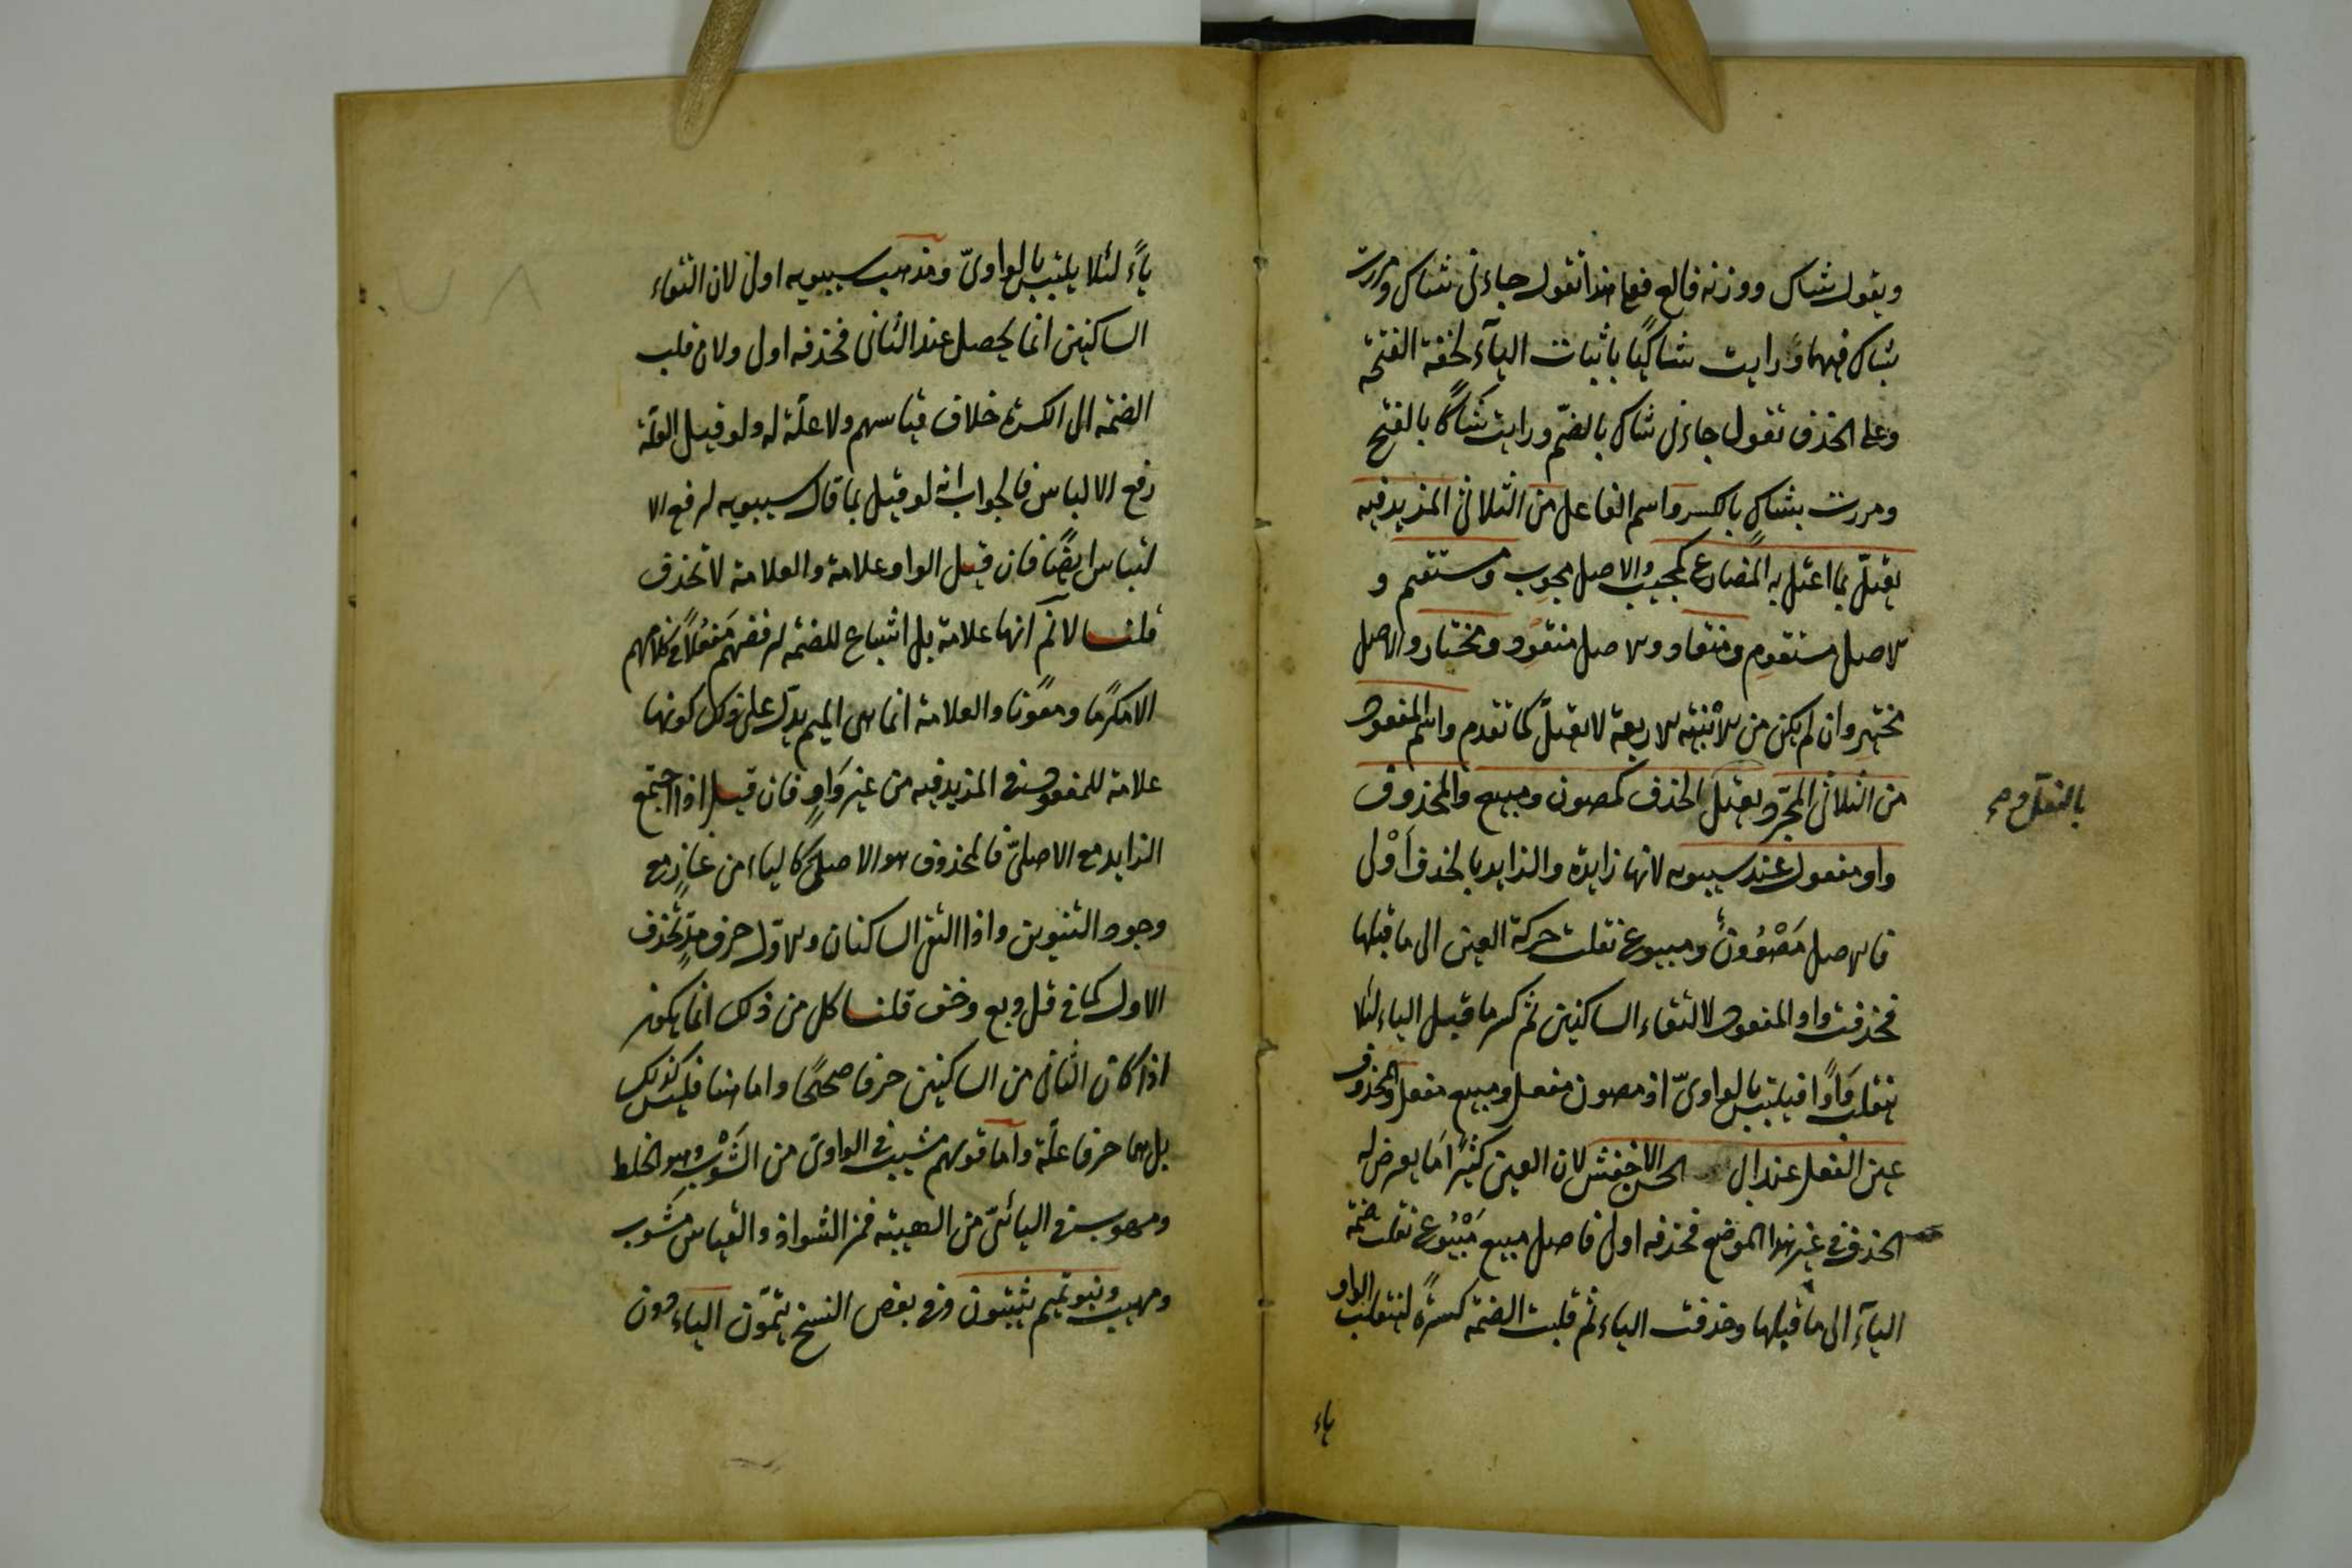 ويقول شاك ووزنه فالع فعلى هذا تقول جاءنى شاك ومررت
بشاك فيهما ورايت شاكيًا باثبات الياء لخفة الفتحة
وعلى الحذف تقول جاءنى شاك بالضمّ ورايت شاكًا بالفتح
ومررت بشاكٍ بالكسر واسم الفاعل من الثلاثى المزيد فيه
يعتلّ بما اعتل به المضارع كمجيب والاصل مجوِب ومستقيم و
الاصل مستقوِم ومنقاد والاصل منقوِد ومختار والاصل
مختيِر وان لم يكن من الابنية الاربعة لا يعتلّ كما تقدم واسم المفعول
من الثلاثى المجرّد يعتل الحذف كمصون ومبيع والمحذوف
بالنقل و صح
واو مفعول عند سيبويه لانها زايدة والزايد بالحذف اَوْلى
فالاصل مَصْوُونٌ ومبيوع نقلت حركة العين الى ما قبلها
فحذفت واو المفعول لالتقاء الساكنين ثم كسر ما قبل الياء لئلا
ينقلب وَاوًا فيلتبس بالواوىّ اذ مصون مفعل ومبيع مفعل والمحذوف
عين الفعل عند ابى الحسن الاخفش لان العين كثيرًا مَا يعرض له
الحذف فى غير هذا الموضع فحذفه اولى فاصل مبيع مَبْيُوع نقلت ضمة
الياء الى ما قبلها وحذفت الياء ثم قلبت الضمة كسرةً لتنقلب الواو
ياء
ياءً لئلا يلتبس بالواوىّ ومذهب سيبويه اولى لان التقاء
الساكنين انما يحصل عند الثانى فحذفه اولى ولان قلب
الضمة الى الكسرة خلاف قياسهم ولا علّة له ولو قيل العلّة
رفع الالباس فالجواب انه لو قيل بما قال سيبويه لرفع الا
لتباس ايضًا فان قيل الواو علامة والعلامة لا تحذف
قلنا لا نم انها علامة بل اشباع للضمة لرفضهم مَفعُلًا فى كلامهم
الا مكرمًا ومعونًا والعلامة انما هى الميم يدلّ على ذلك كونها
علامة للمفعول فى المزيد فيه من غير وَاوٍ فان قيل اذا اجتمع
الزايد مع الاصلىّ فالمحذوف هو الاصلى كالياء من غازٍ مع
وجود التنوين واذا التقى الساكنان والاول حرف مدٍّ تحذف
الاول كما فى قل وبع وخف قلنا كل من ذلك انما يكون
اذا كان الثانى من الساكنين حرفا صحيحًا واما هنا فليس كذلك
بل هما حرفا علّة واما قولهم مشيب فى الواوىّ من الشَّوْب وهو الخلط
ومهوب فى اليائىّ من الهيبة فمن الشواذ والقياس مَشُوب
ومهيب وبنو تميم يثبتون وفى بعض النسخ يتمّون الياء دون